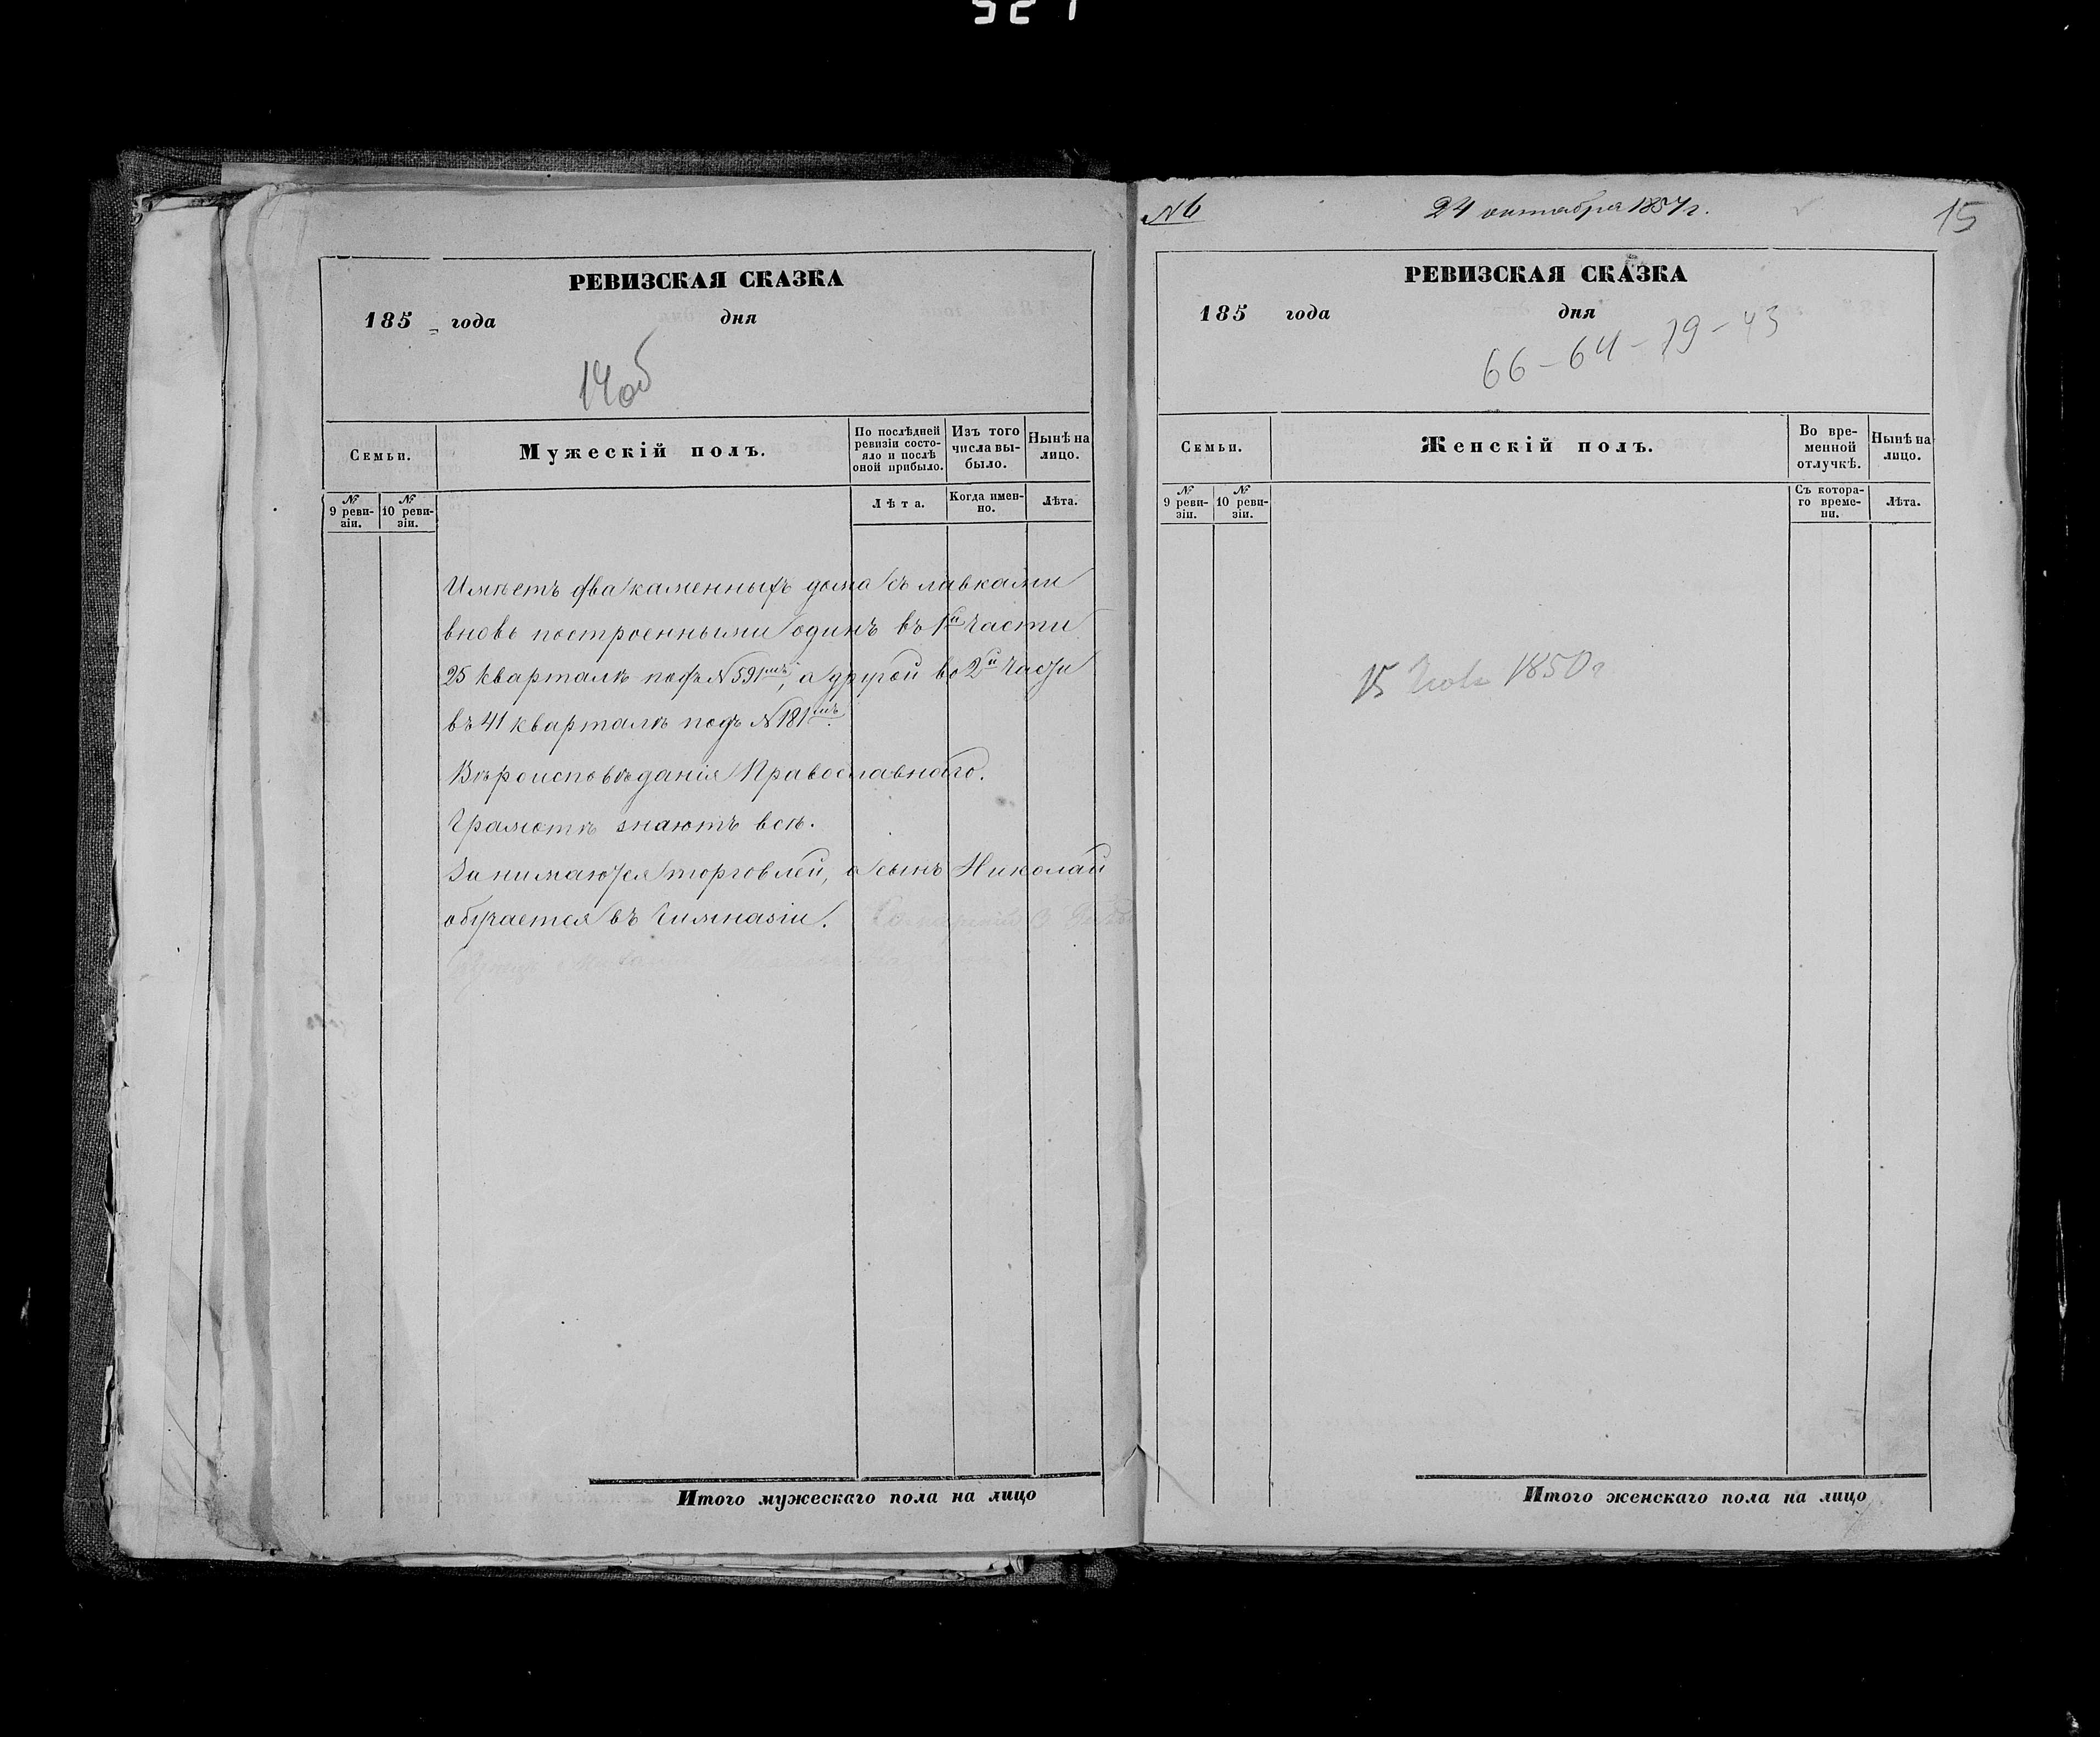 РЕВИЗСКАЯ СКАЗКА
185 года дня
14об
Семьи.
Мужескій полъ.
По послѣдней ревизіи состояло и послѣ оной прибыло.
Изъ того числа выбыло.
Нынѣ на лицо.
№ 9 ревизіи.
№ 10 ревизіи.
Лѣта.
Когда именно.
Лѣта.
Имѣетъ два каменныхъ дома съ лавками
вновь построенными одинъ въ 1й части
25 кварталѣ подъ №591мъ, а другой во 2й части
въ 41 кварталѣ подъ №181мъ.
Вѣроисповѣданія Православнаго.
Грамотѣ знаютъ всѣ.
Занимаются торговлей, а сынъ Николай
обучается въ Гимназіи.
Итого мужескаго пола на лицо
№6
24 октября 1857г.
15
РЕВИЗСКАЯ СКАЗКА
185 года дня
66-64-79-43
Семьи.
Женскій полъ.
Во временной отлучкѣ.
Нынѣ на лицо.
№ 9 ревизіи.
№ 10 ревизіи.
Съ котораго времени.
Лѣта.
15 1850г
Итого женскаго пола на лицо